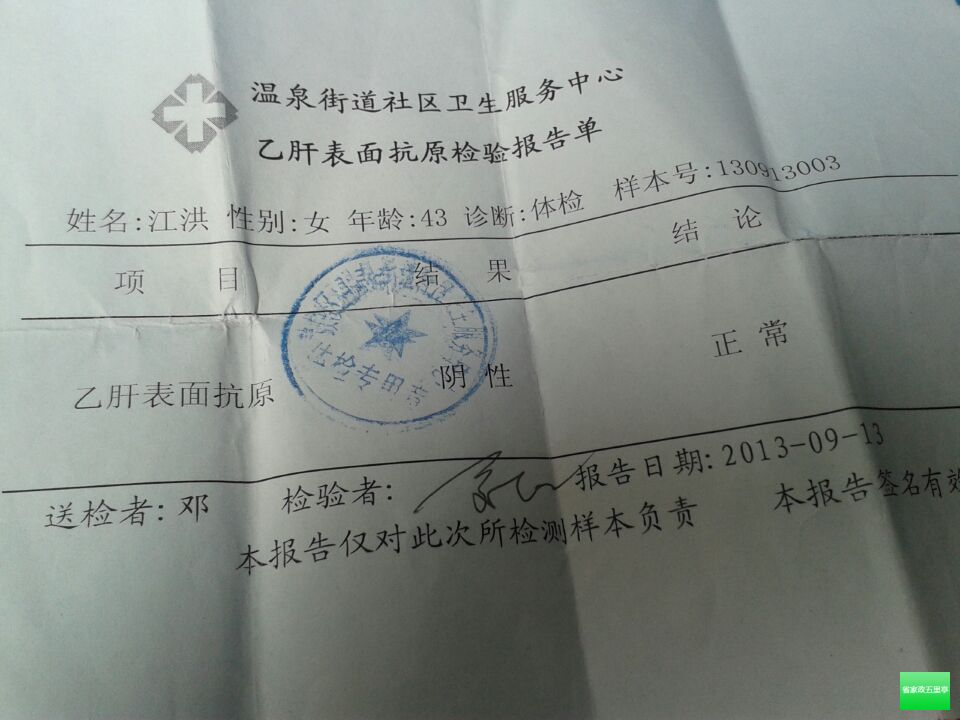 温泉街道社区卫生服务中心
乙肝表面抗原检验报告单
姓名:江洪 性别:女 年龄:43 诊断:体检 样本号:130913003
项 目 结 果 结 论
乙肝表面抗原 阴 性 正 常
体检专用章
送检者:邓 检验者: 报告日期:2013-09-13
本报告仅对此次所检测样本负责 本报告签名有效
省家政五里亭